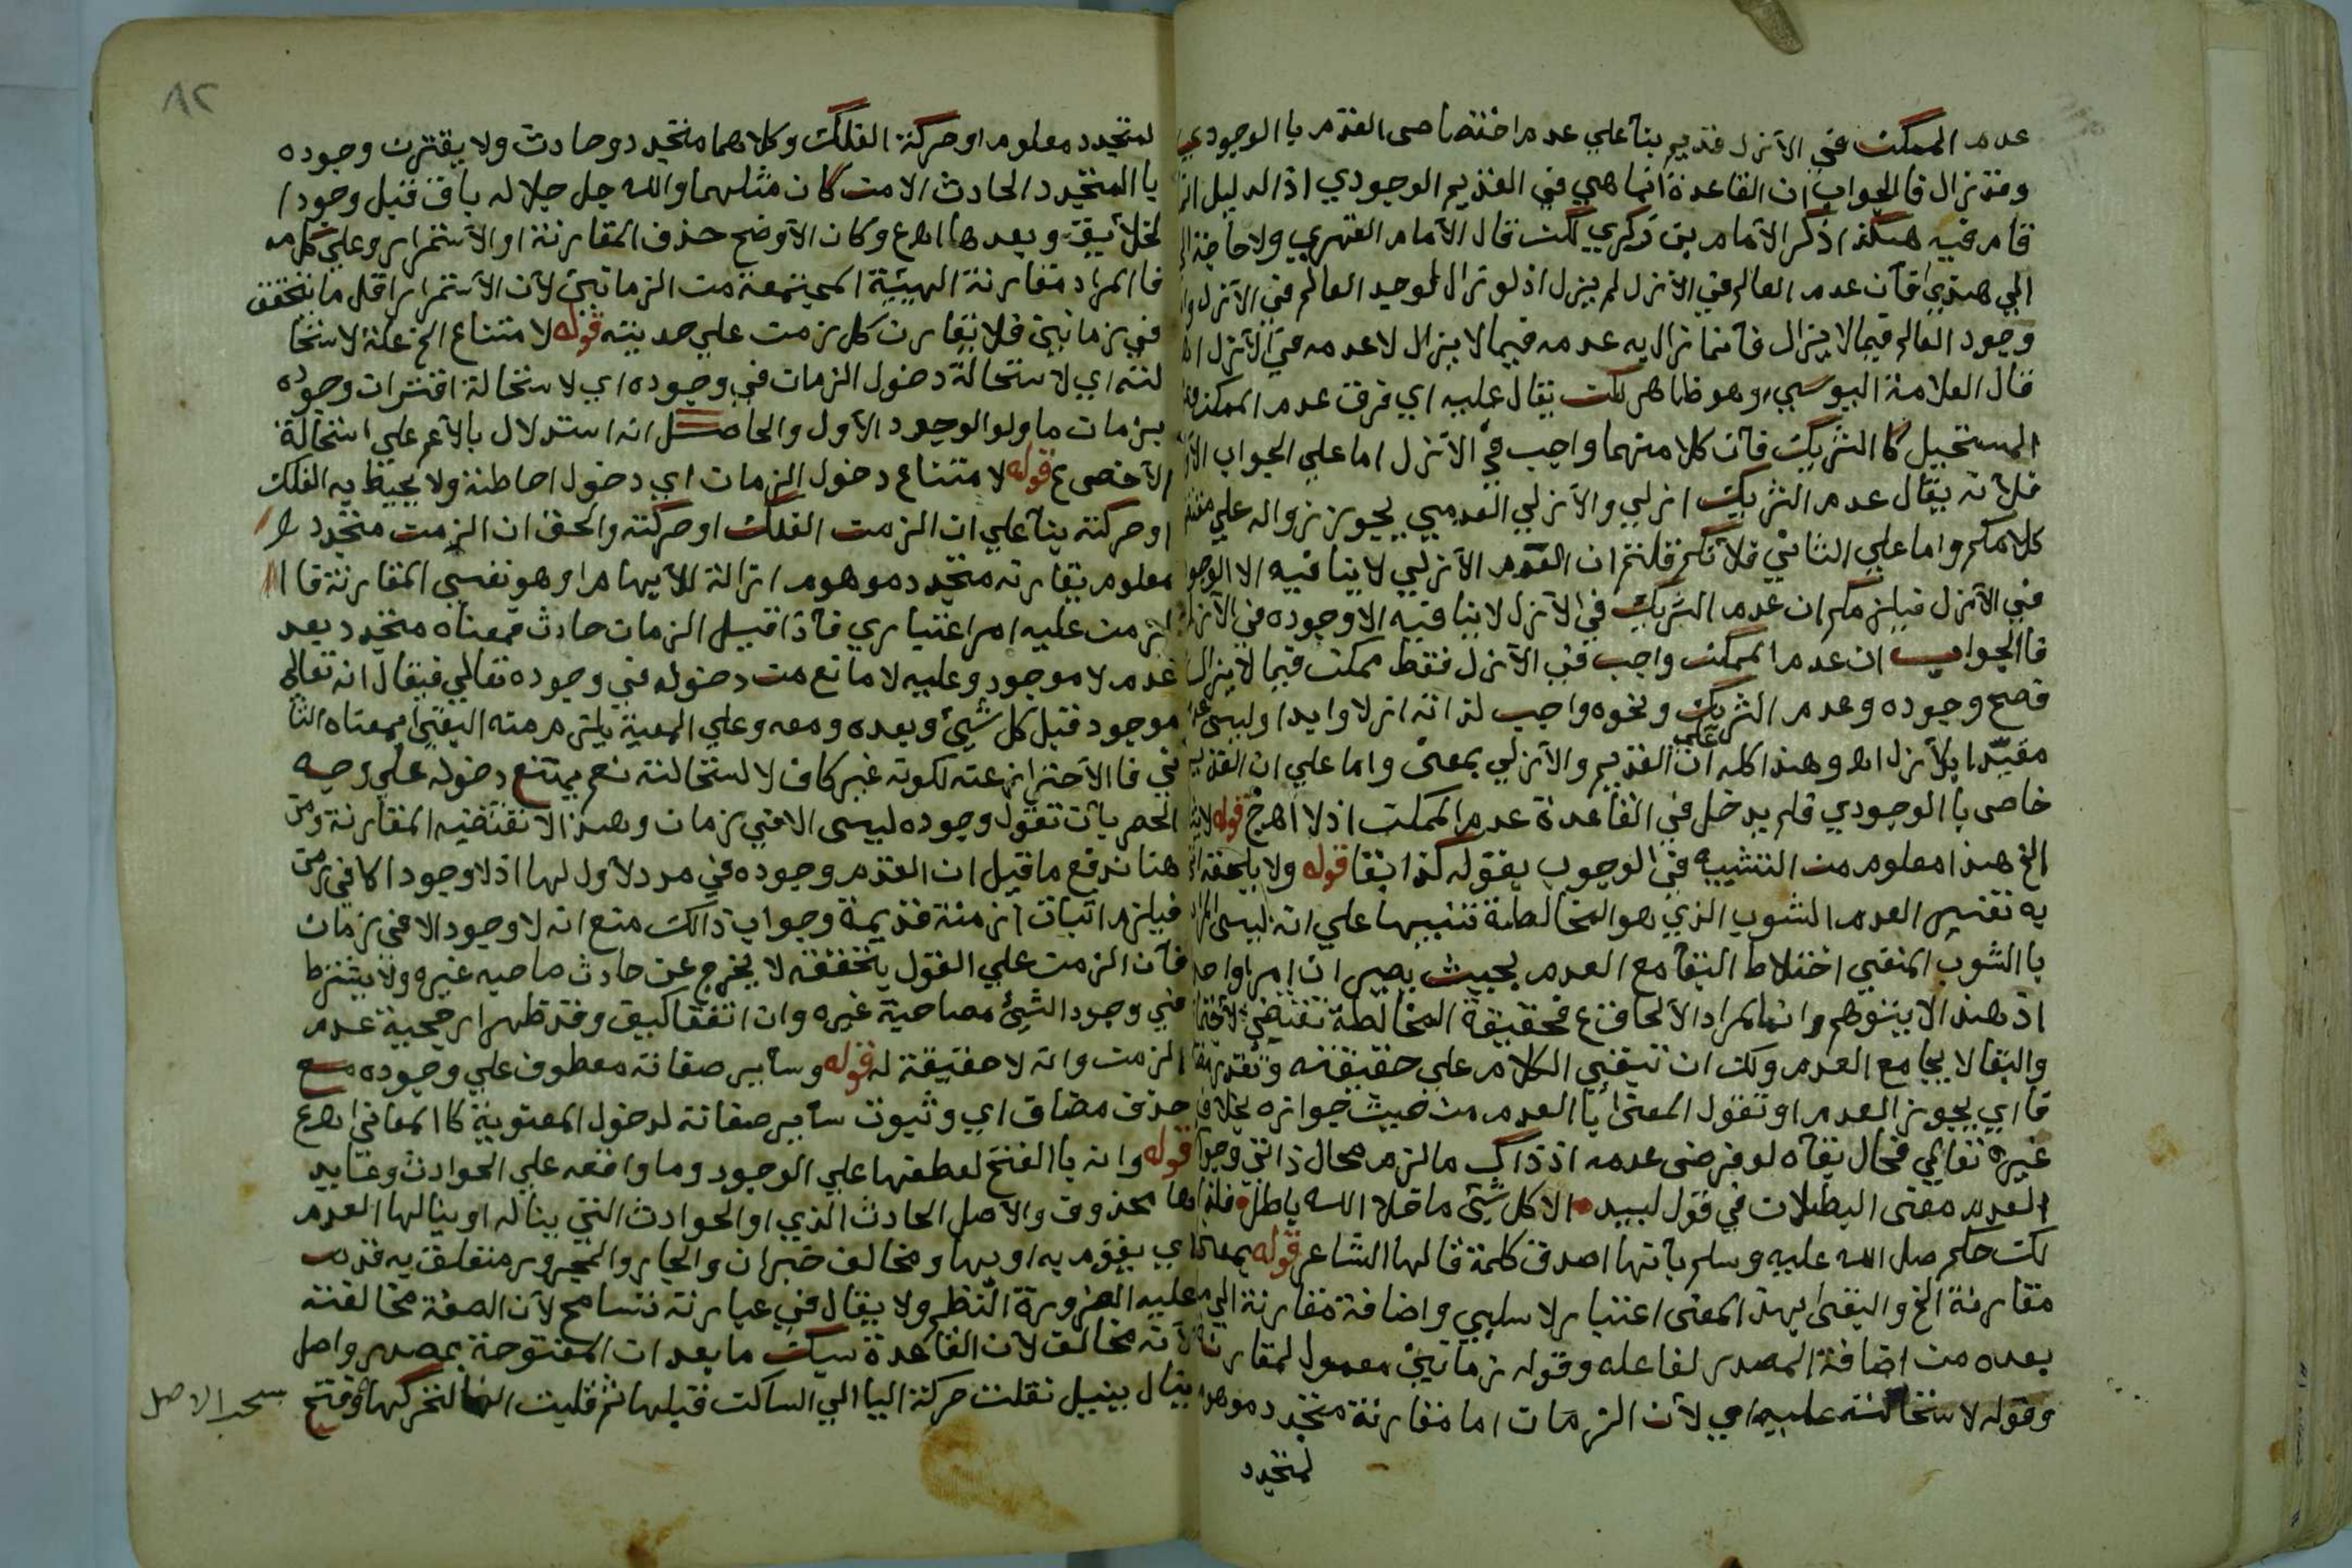 عدم الممكن في الأزل قديم بنآ علي عدم اختصاص القدم با الوجودي
وقد زال فا لجواب ان القاعدة انما هي في القديم الوجودي اذ الدليل
قام فيه هكذا ذكر الأمام بن زكري لكن قال الأمام الفهري ولا حاجة
الي هذي فآن عدم العالم في الأزل لم يزل اذ لو زال لوجد العالم في الأزل
وجود العالم فيما لا يزال فآنما زال به عدمه فيما لا يزال لا عدمه في الأزل
قال العلامة اليوسي وهو ظاهر لكن يقال عليه اي فرق عدم الممكن
المستحيل كا الشريك فآن كلا منهما واجب في الأزل اما علي الجواب
فلآنه يقال عدم الشريك ازلي والأزلي العدمي يجوز زواله علي
كلامكم واما علي الثاني فلآنكم قلتم ان العدم الأزلي لا ينافيه الا الوجود
في الأزل فيلزمكم ان عدم الشريك في الأزل لا ينافيه الا وجوده في الأزل
فا الجواب ان عدم الممكن واجب في الأزل فقط ممكن فيما لا يزال
فصح وجوده وعدم الشريك ونحوه واجب لذاته ازلا وابدا وليس
مقيدا بلأزل اه وهذا كله علي ان القديم والأزلي بمعنى واما علي ان القديم
خاص با الوجودي فلم يدخل في القاعدة عدم الممكن اذ لا اهج قوله
الخ هذا معلوم من التشبيه في الوجوب بقوله كذا بقا قوله ولا يلحقه
به تفسير العدم الشوب الذي هو المخالطة تنبيها علي انه ليس المراد
با الشوب المنفي اختلاط البقآ مع العدم بحيث يصيران امرا واحدا
اذ هذا لا يتوهم وانما المراد الألحاق ع فحقيقة المخالطة تقتضي
والبقا لا يجامع العدم ولك ان تبقي الكلام علي حقيقته وتقدر
فا اي بجويز العدم او تقول المعنى با العدم من حيث جوازه بخلاف
غيره تعالي فحال بقآه لو فرض عدمه اذ ذاك ما لزم محال ذاتي وجواز
العدم معنى البطلان في قول لبيد الا كل شئ ما خلا الله باطل فلذا
لكن حكم صل الله عليه وسلم بآنها اصدق كلمة قالها الشاعر قوله
مقارنة الخ والبقى بهذ المعنى اعتبار لا سلبي واضافة مقارنة الي
بعده من اضافة المصدر لفاعله وقوله زمانين معمول لمقارنة
وقوله لاستحالته عليه اي لأن الزمان اما مقارنة متجدد موهوم
لمتجدد
٨٢
لمتجدد معلوم او حركة الفلك وكلاهما متجدد وحادث ولا يقترن وجوده
با المتجدد الحادث الا من كان مثلهما والله جل جلاله باق قبل وجود ا
لخلآيق وبعدها اهع وكان الأوضح حذف المقارنة او الأستمرار وعلي كل
فا المراد مقارنة الهيئة المجتمعة من الزمانين لأن الأستمرار اقل ما يتحقق
في زمانين فلا يقارن كل زمن علي حديته قوله لامتناع الخ علة لاستحا
لته اي لاستحالة دخول الزمان في وجوده اي لاستحالة اقتران وجوده
بزمان ما ولو الوجود الأول والحاصل انه استدلال بالأعم علي استحالة
الأخص ع قوله لامتناع دخول الزمان اي دخول احاطة ولا يحيط به الفلك
او حركته بنآ علي ان الزمن الفلك او حركته والحق ان الزمن متجدد
معلوم يقارنه متجدد موهوم ازالة للآيهام او هو نفس المقارنة فا ا
لزمن عليه امر اعتباري فآذا قيل الزمان حادث فمعناه متجدد بعد
عدم لا موجود وعليه لا مانع من دخوله في وجوده تعالي فيقال انه تعالي
موجود قبل كل شئ وبعده ومعه وعلي المعية يلتزم منه البقى بمعناه الثا
ني فا الأحتراز عنه لكونه غير كاف لا لستحالته نعم يمتنع دخوله علي وجه
الحصر بآن تقول وجوده ليس الا في زمان وهذا لا تقتضيه المقارنة ومن
هنا ندفع ما قيل ان القدم وجوده في مدد لأول لها اذ لا وجود الا في زمن
فيلزم اثبات ازمنة قديمة وجواب ذالك منع انه لا وجود الا في زمان
فآن الزمن علي القول بتحققه لا يخرج عن حادث صاحبه غيره ولا يشترط
في وجود الشئ مصاحبة غيره وان اتفقا كيف وقد ظهر ارجحية عدم
الزمن وانه لا حقيقة له قوله وسآير صفاته معطوف علي وجوده مع
حذف مضاف اي وثبوت سآير صفاته لدخول المعنوية كا المعاني اهع
قوله وانه با الفتح لعطفها علي الوجود وما واقعه علي الحوادث وعايد
ها محذوف والأصل الحادث الذي او الحوادث التي يناله او ينالها العدم
اي يقوم به او بها ومخالف خبر ان والجار والمجرور متعلق به قدمت
عليه الضرورة النظم ولا يقال في عبارته تسامح لأن الصفة مخالفته
لآنه مخالف لأن القاعدة سبك ما بعد ان المفتوحة بمصدر واصل
ينال ينيل نقلت حركة اليا الي الساكن قبلها ثم قلبت الفا لتحركها وفتح